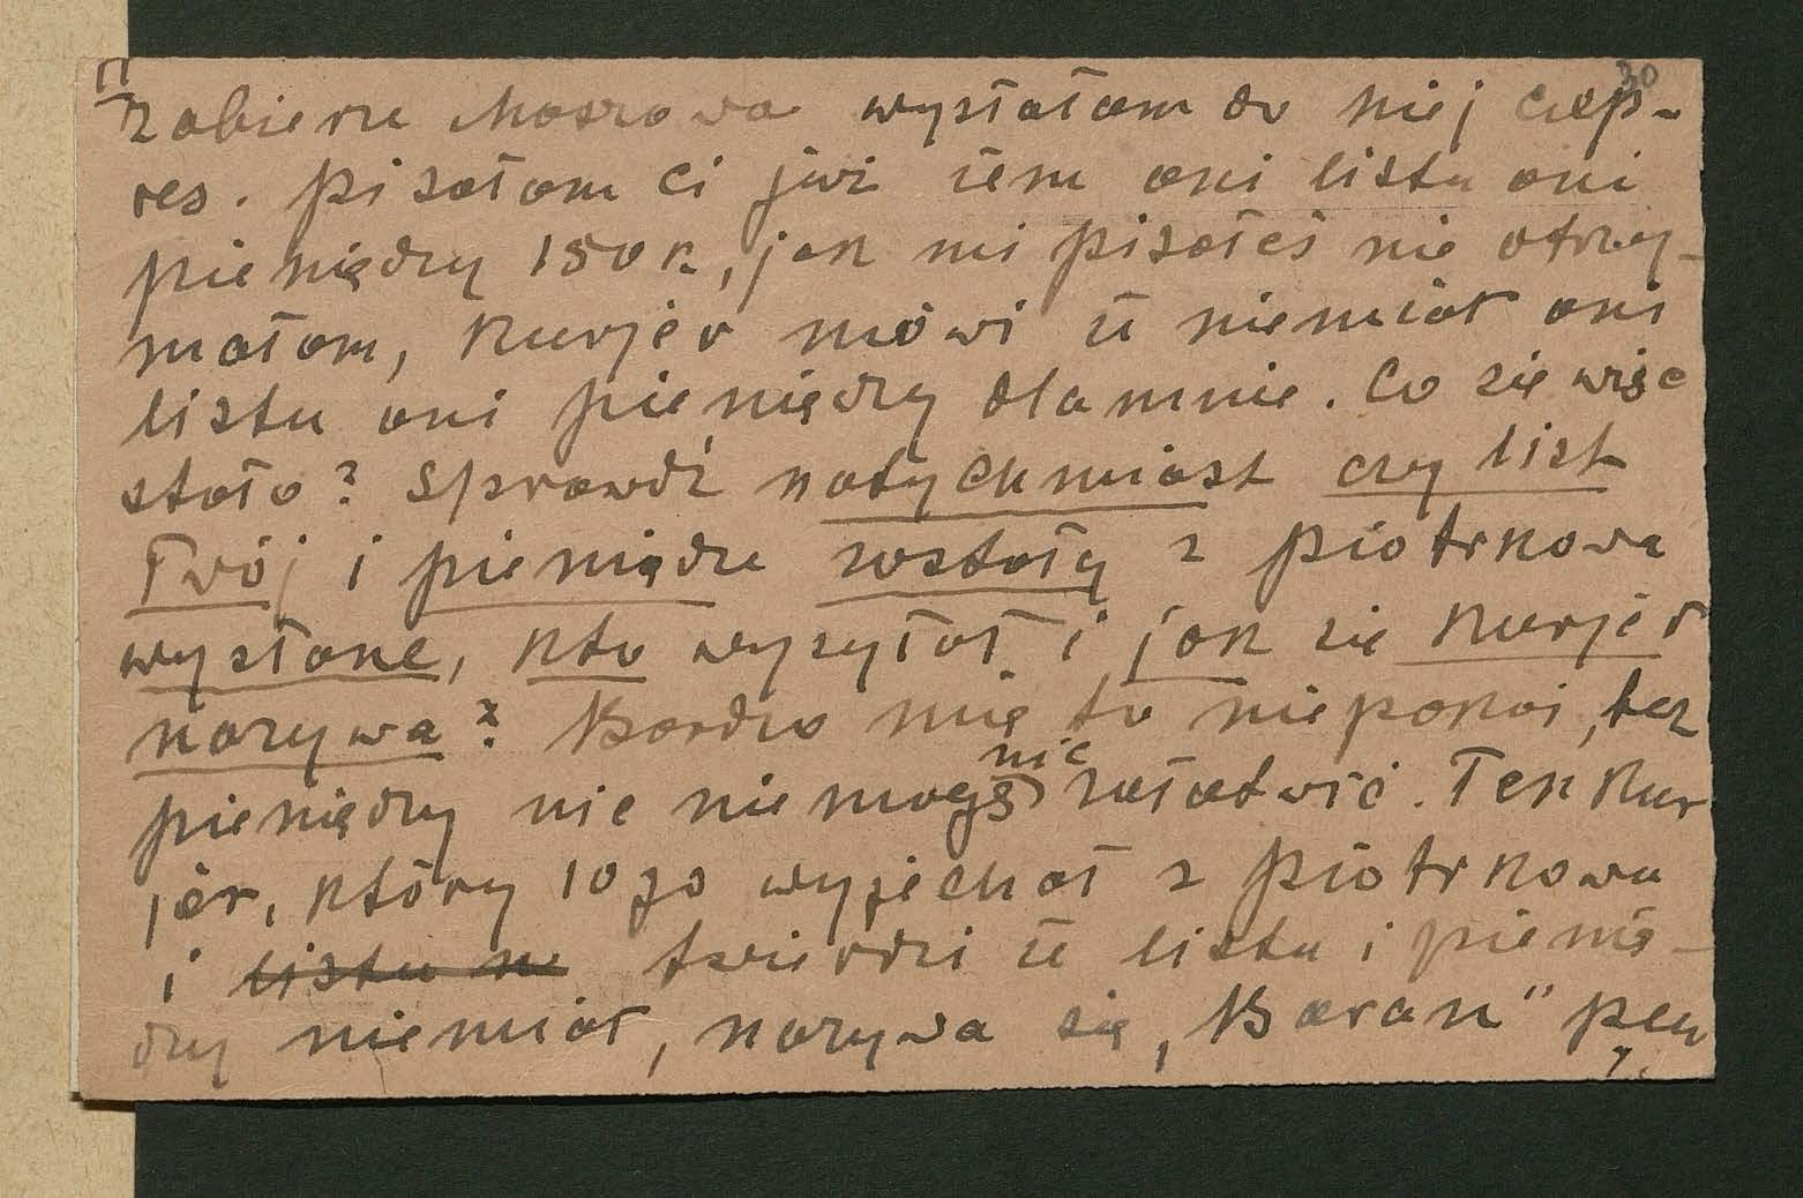 II
30
zabierze Maszowa wysłałam do niej eksp-
res. pisałam ci już żem ani listu ani
pieniędzy 150 k, jak mi pisałeś nie otrzy-
małam, kurjer mówi że niemiał ani
listu ani pieniędzy dlamnie. Co się więc
stało? Sprawdź natychmiast czy list
Twój i pieniądze zostały z piotrkowa
wysłane, kto wysyłał i jak się kurjer
nazywa? Bardzo mię to niepokoi, bez
pieniędzy nic niemogę nic załatwić. Ten kur
jer, który 10 go wyjechał z piotrkowa
i listu n twierdzi że listu i pienię-
dzy niemiał, nazywa się „Baran"